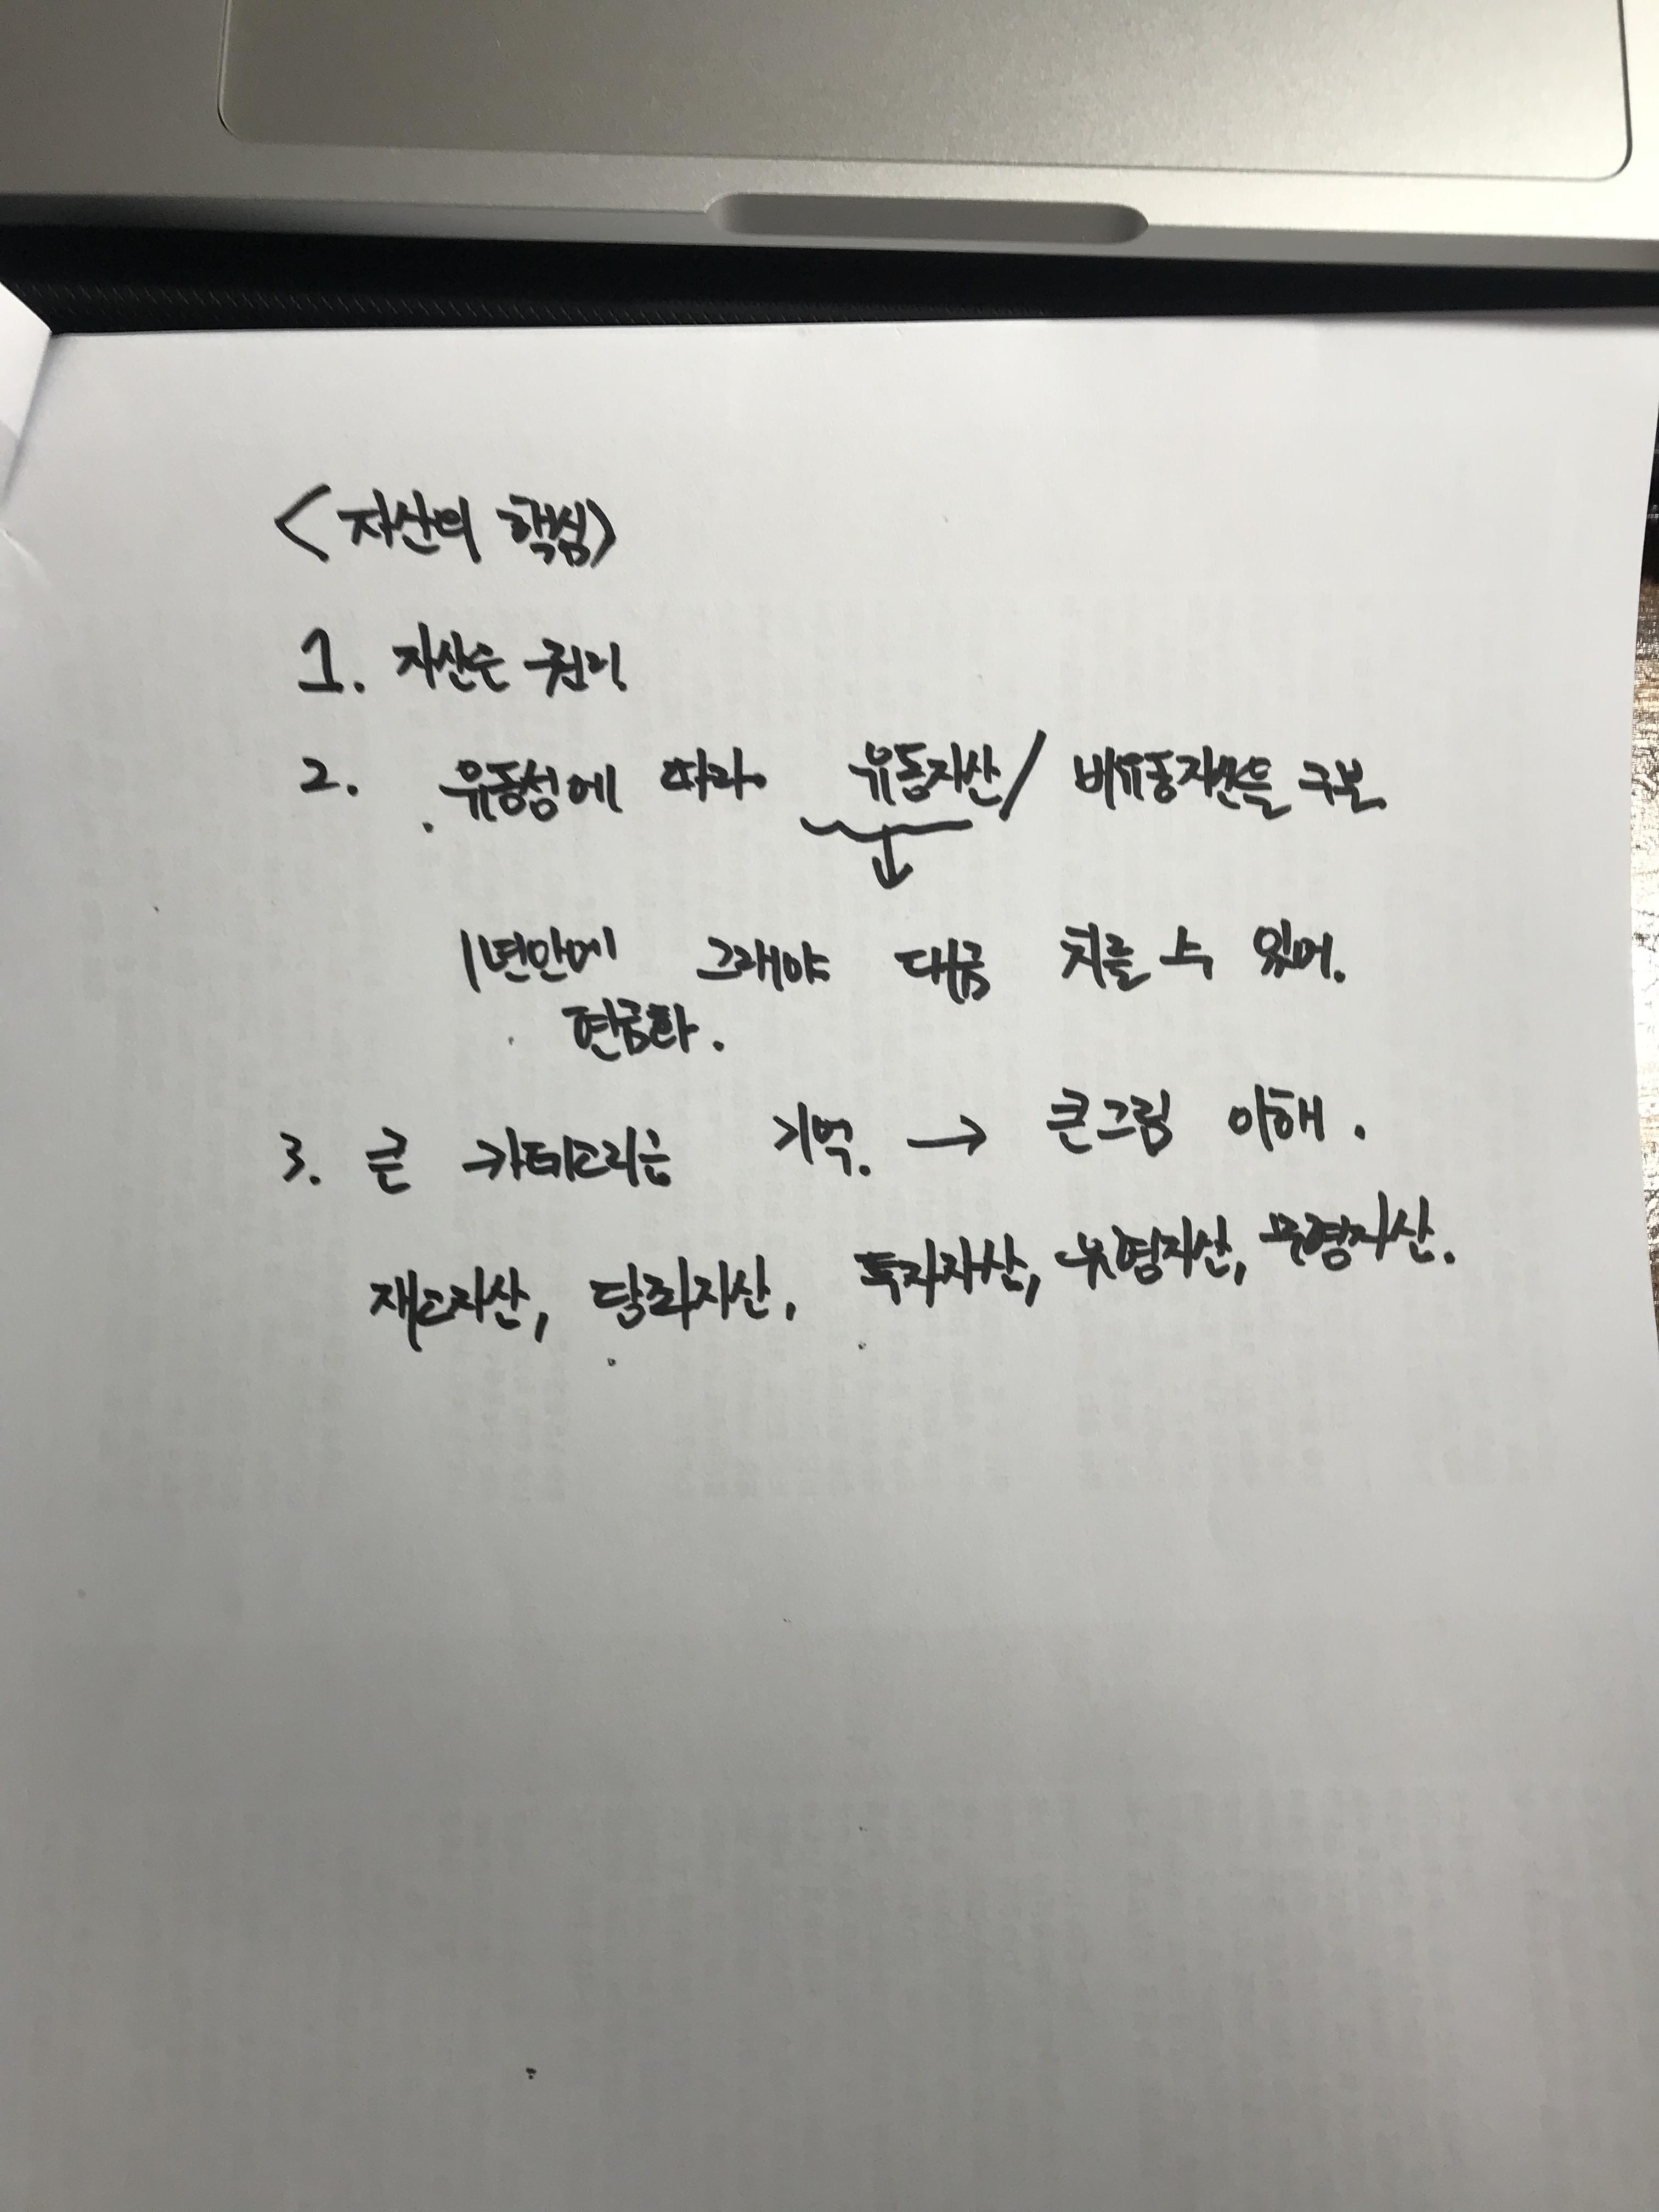 <자산의 핵심>
1. 자산은 권리
2. 유동성에 따라 유동자산/ 비유동자산을 구분
1년안에 그래야 대금 치를 수 있어.
현금화.
3. 큰 카테고리는 기억. → 큰그림 이해.
재고자산, 당좌자산, 투자자산, 유형자산, 무형자산.